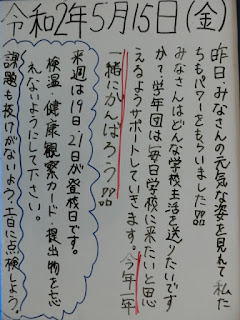 令和2年5月15日(金)
昨日みなさんの元気な姿を見れて私た
ちもパワーをもらいました!!
みなさんはどんな学校生活を送りたいです
か?学年団は「毎日学校に来たい」と思
えるようサポートしていきます。今年一年
一緒にがんばろう!!
来週は19日・21日が登校日です。
検温・健康観察カード・提出物を忘
れないようにして下さい。
課題も抜けがないよう、十二分に点検しよう。